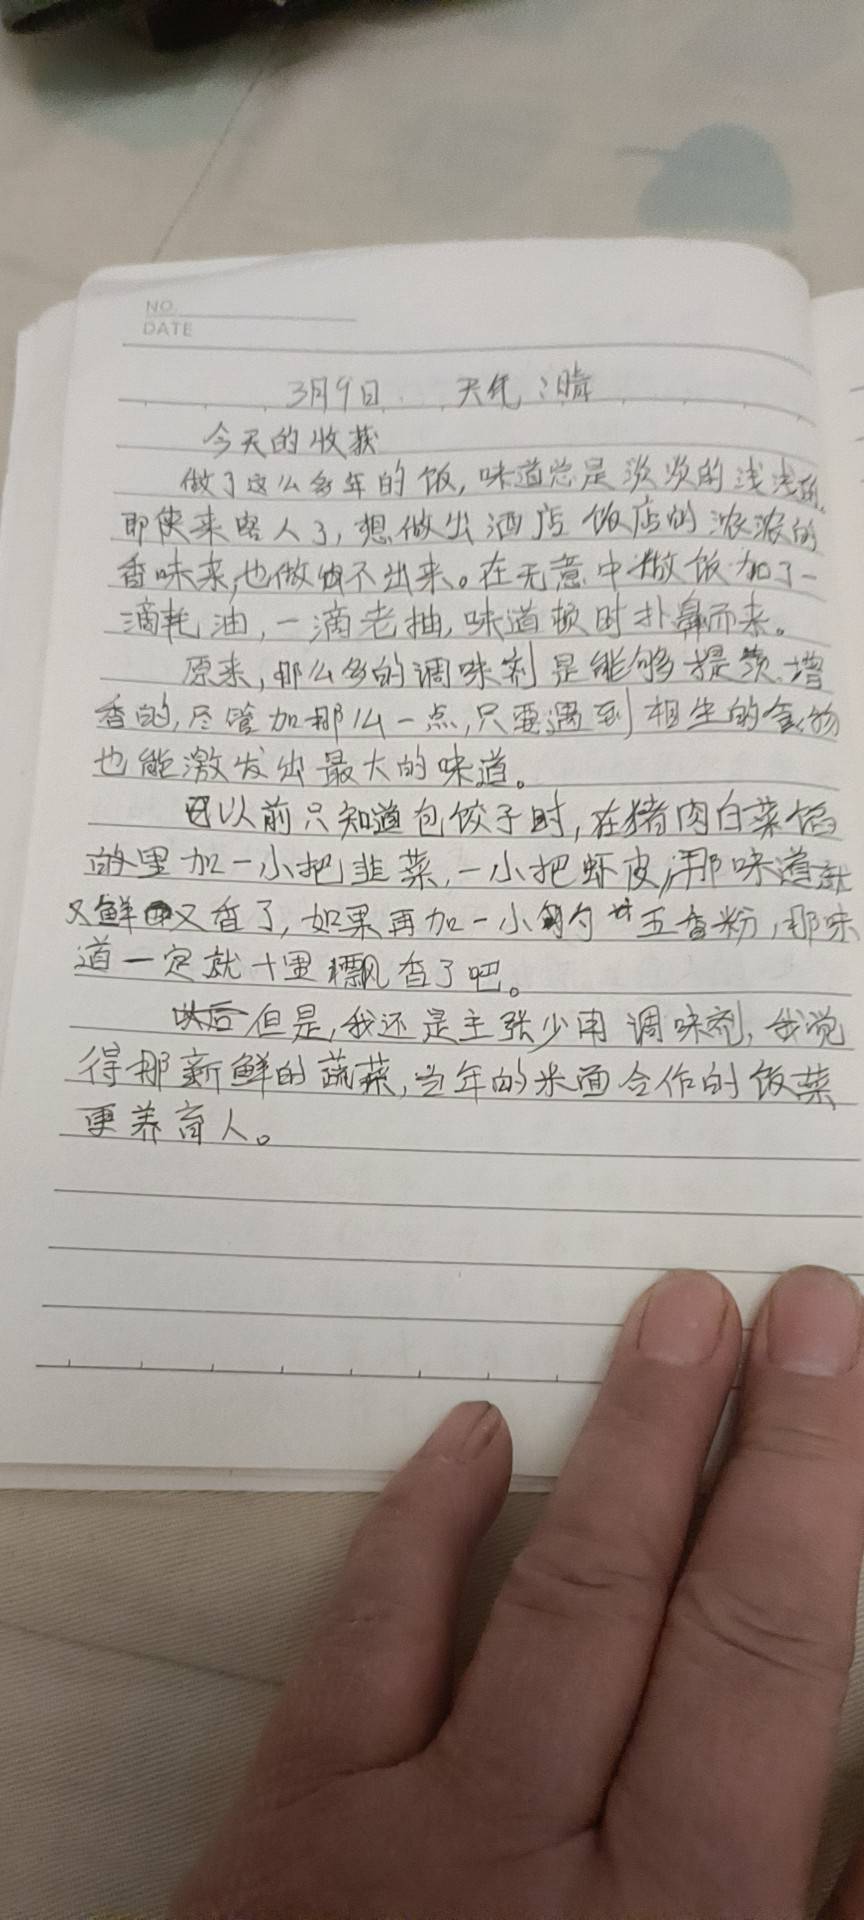 NO.
DATE
3月9日 天气:晴
今天的收获
做了这么多年的饭,味道总是淡淡的浅浅的,
即使来客人了,想做出酒店饭店的浓浓的
香味来,也做不出来。在无意中做饭加了一
滴耗油,一滴老抽,味道顿时扑鼻而来。
原来,那么多的调味剂是能够提鲜、增
香的,尽管加那么一点,只要遇到相生的食物
也能激发出最大的味道。
以前只知道包饺子时,在猪肉白菜馅
的里加一小把韭菜,一小把虾皮,那味道就
又鲜又香了,如果再加一小勺五香粉,那味
道一定就十里飘香了吧。
以后但是,我还是主张少用调味剂,我觉
得那新鲜的蔬菜,当年的米面合作的饭菜
更养育人。